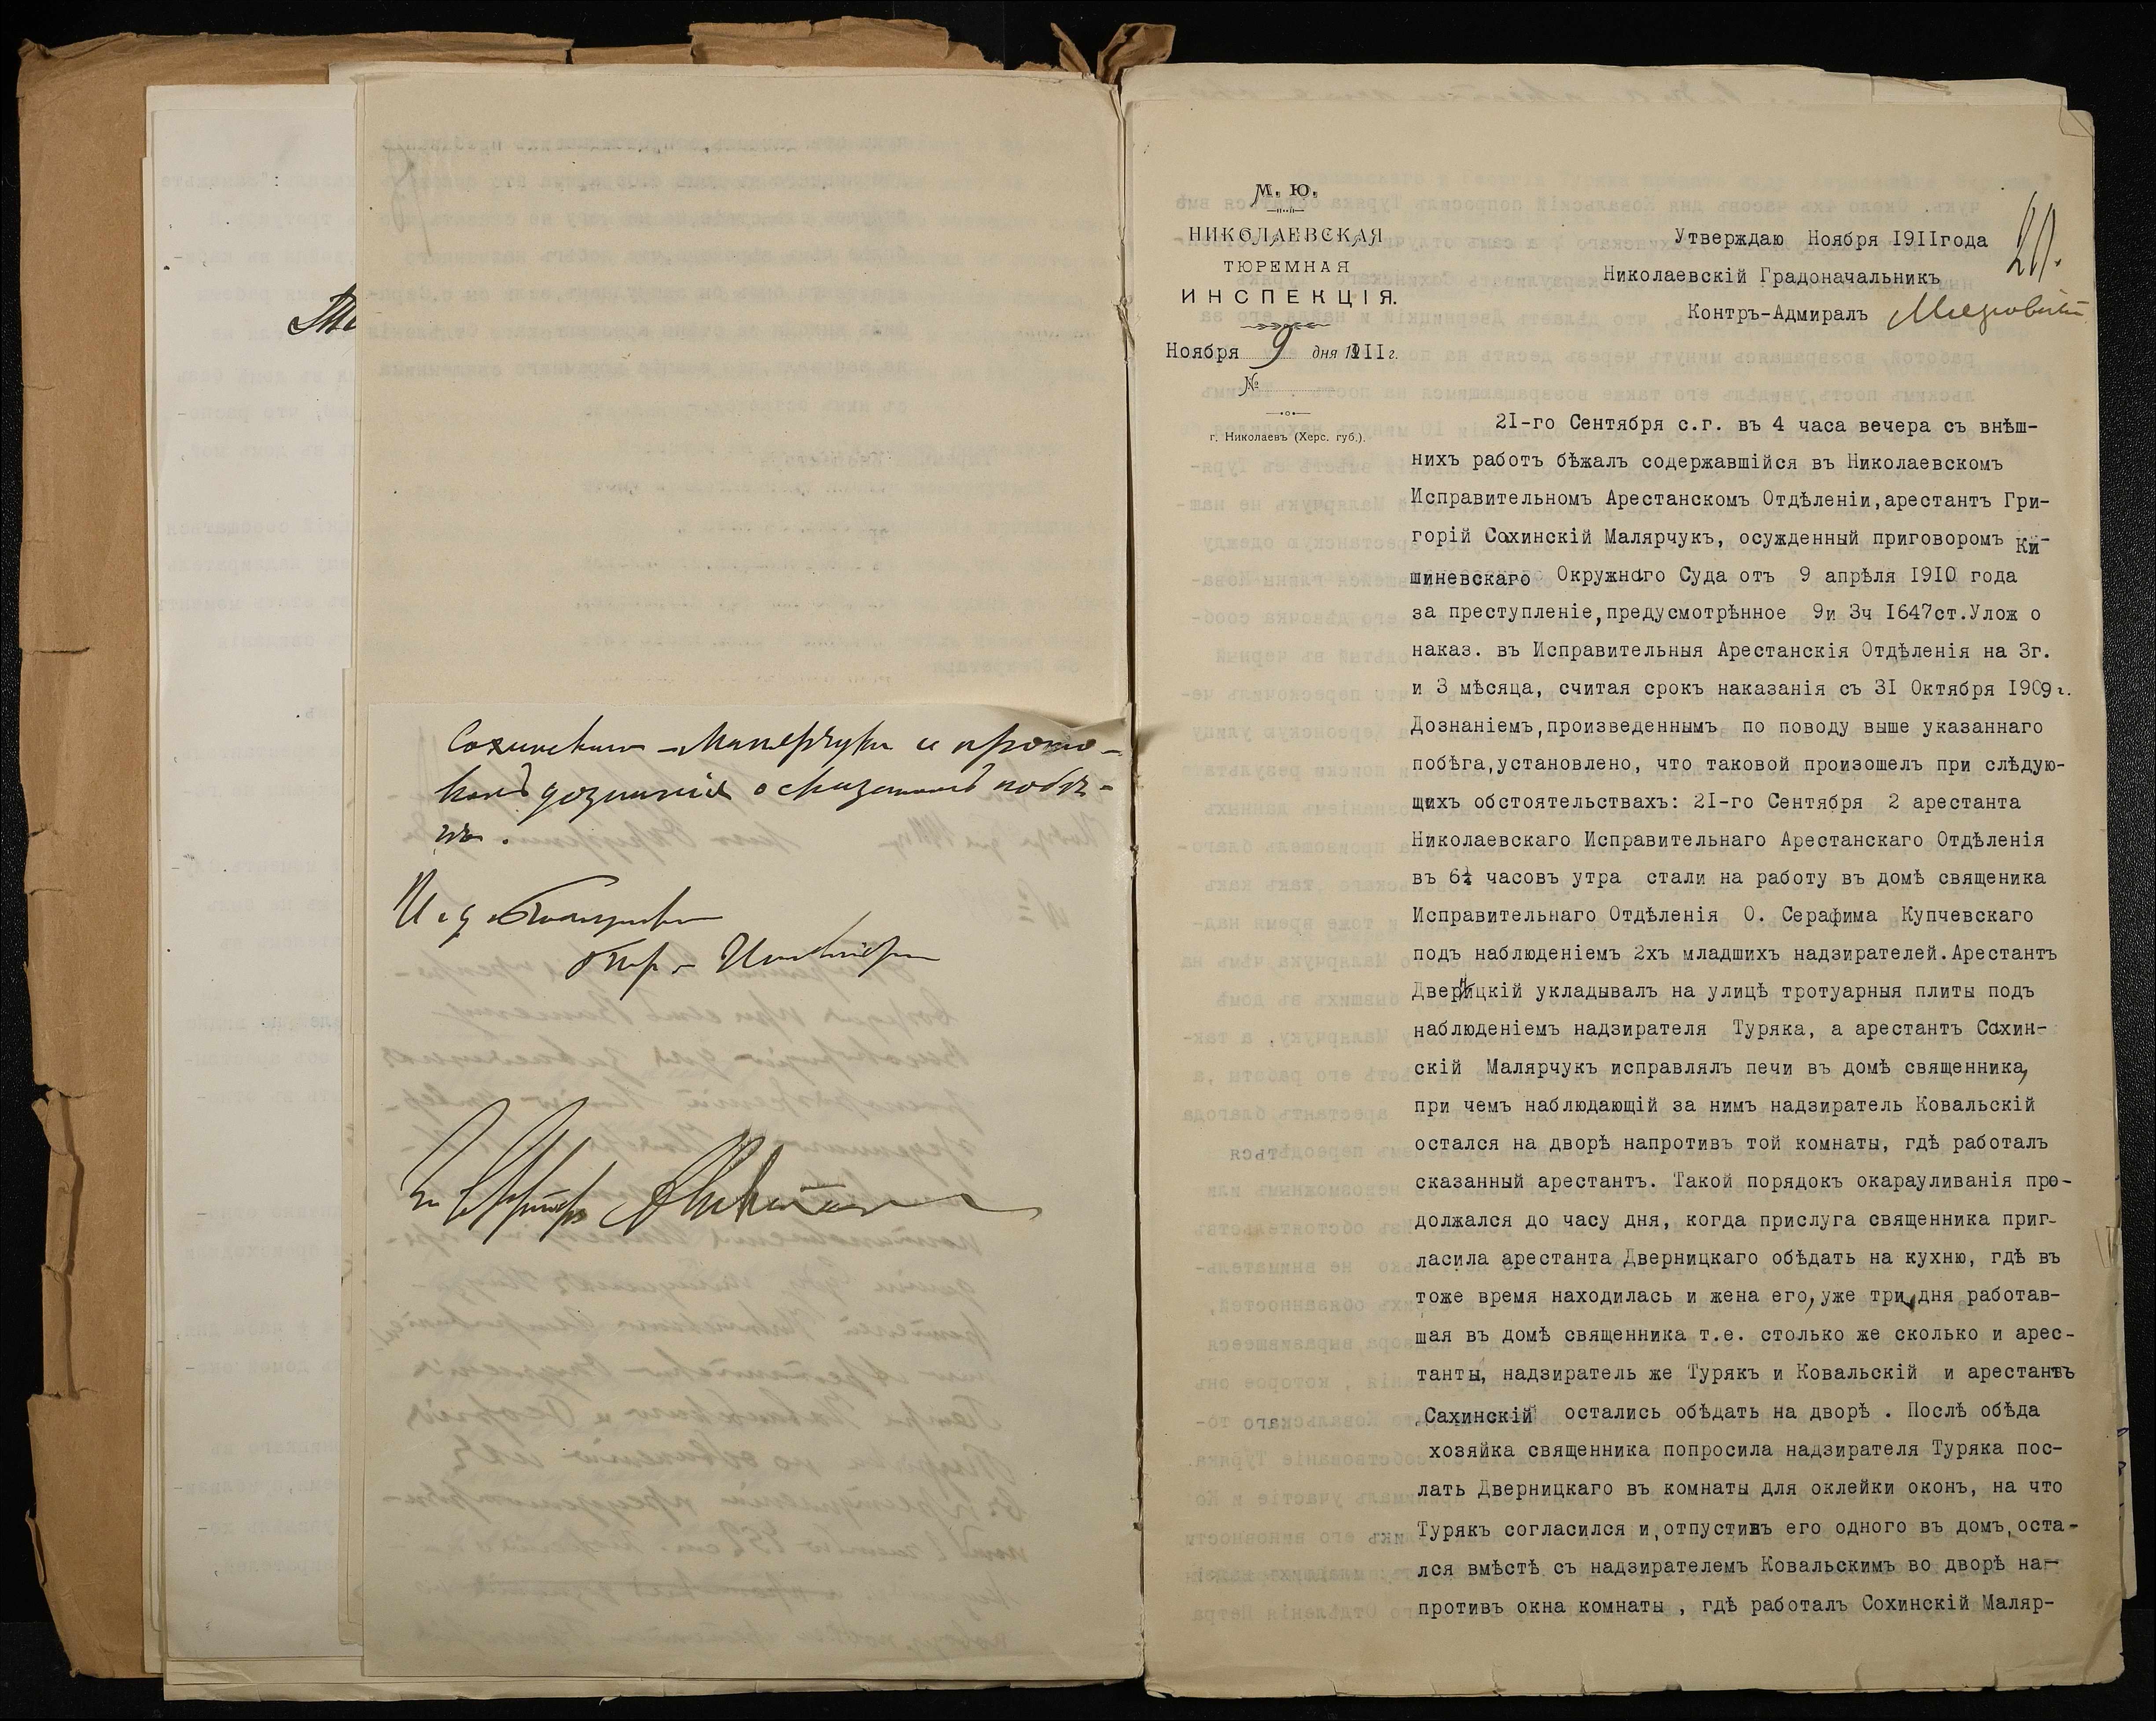 Сохинскимъ-Малерчукъ и прото-
колъ дознанія о сказанномъ побѣ-
гѣ.
М. Ю.
НИКОЛАЕВСКАЯ
ТЮРЕМНАЯ
ИНСПЕКЦІЯ.
Ноября 9 дня 1911 г.
№
г. Николаевъ (Херс. губ.).
Утверждаю Ноября 1911года
Николаевскій Градоначальникъ
Контръ-Адмиралъ
21-го Сентября с.г. въ 4 часа вечера съ внѣш-
нихъ работъ бѣжалъ содержавшійся въ Николаевскомъ
Исправительномъ Арестанскомъ Отдѣленіи,арестантъ Гри-
горій Сохинскій Малярчукъ, осужденный приговоромъ Ки-
шиневскаго Окружнаго Суда отъ 9 апрѣля 1910 года
за преступленіе,предусмотрѣнное 9и 3ч 1647ст.Улож о
наказ. въ Исправительныя Арестанскія Отдѣленія на 3г.
и 3 мѣсяца, считая срокъ наказанія съ 31 Октября 1909 г.
Дознаніемъ,произведеннымъ по поводу выше указаннаго
побѣга,установлено, что таковой произошелъ при слѣдую-
щихъ обстоятельствахъ: 21-го Сентября 2 арестанта
Николаевскаго Исправительнаго Арестанскаго Отдѣленія
въ 6½ часовъ утра стали на работу въ домѣ священика
Исправительнаго Отдѣленія О. Серафима Купчевскаго
подъ наблюденіемъ 2хъ младшихъ надзирателей.Арестантъ
Дверницкій укладывалъ на улицѣ тротуарныя плиты подъ
наблюденіемъ надзирателя Туряка, а арестантъ Сахин-
скій Малярчукъ исправлялъ печи въ домѣ священника,
при чемъ наблюдающій за нимъ надзиратель Ковальскій
остался на дворѣ напротивъ той комнаты, гдѣ работалъ
сказанный арестантъ. Такой порядокъ окарауливанія про-
должался до часу дня, когда прислуга священника приг-
ласила арестанта Дверницкаго обѣдать на кухню, гдѣ въ
тоже время находилась и жена его, уже три дня работав-
шая въ домѣ священника т.е. столько же сколько и арес-
танты, надзиратель же Турякъ и Ковальскій и арестантъ
Сахинскій остались обѣдать на дворѣ . Послѣ обѣда
хозяйка священника попросила надзирателя Туряка пос-
лать Дверницкаго въ комнаты для оклейки оконъ, на что
Турякъ согласился и,отпустивъ его одного въ домъ,оста-
лся вмѣстѣ съ надзирателемъ Ковальскимъ во дворѣ на-
противъ окна комнаты , гдѣ работалъ Сохинскій Маляр-